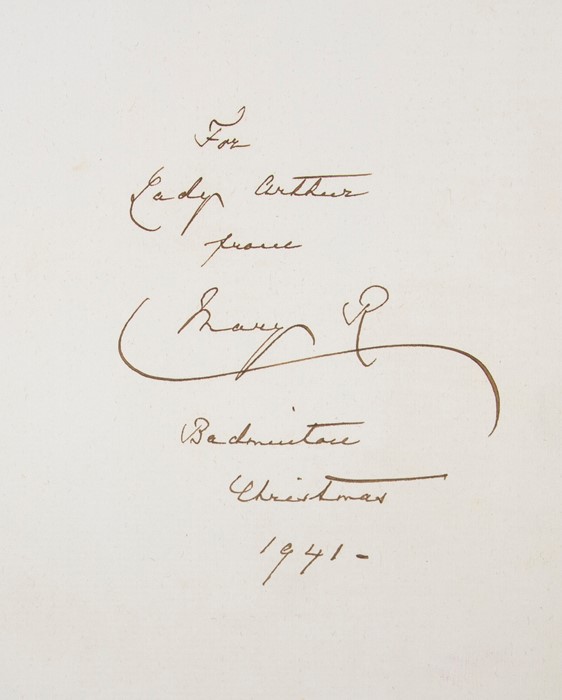 For
Lady Arthur
from
Mary R
Badminton
Christmas
1941-